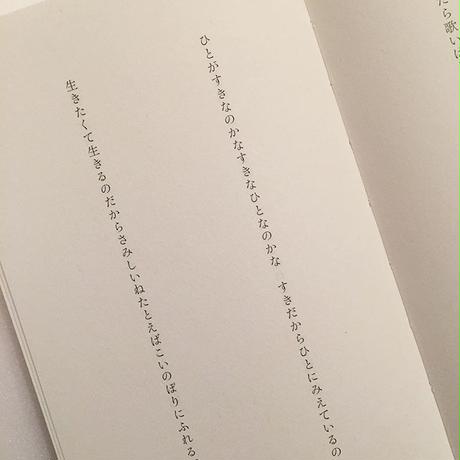 たら歌いに
ひとがすきなのかなすきなひとなのかな　すきだからひとにみえているの
生きたくて生きるのだからさみしいねたとえばこいのぼりにふれる